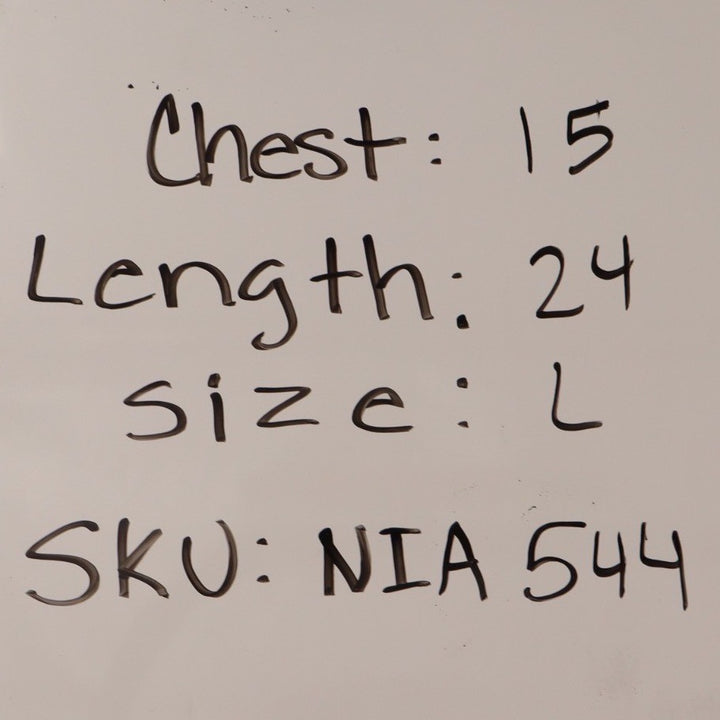 Chest: 15
Length: 24
Size: L
SKU: NIA 544